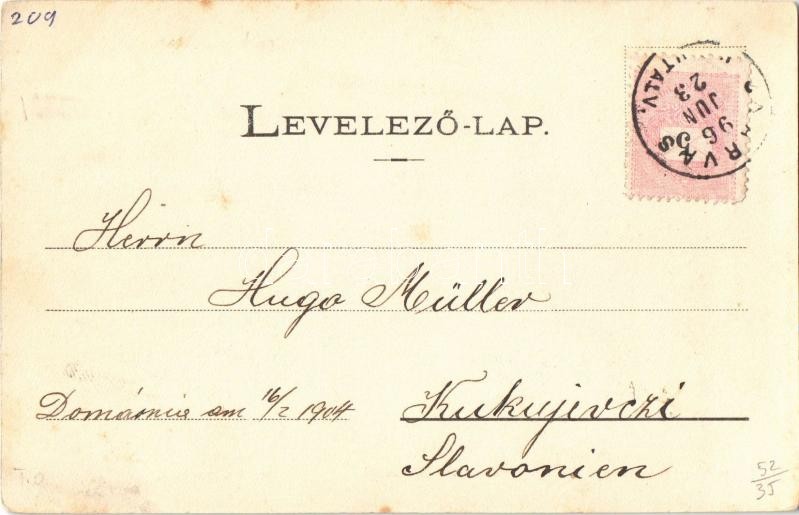 209
UTALV.
23
JUN
96
LEVELEZŐ-LAP.
Herrn
Hugo Müller
Domárnia am 16/2 1904
Kukujevczi
Slavonien
52/35